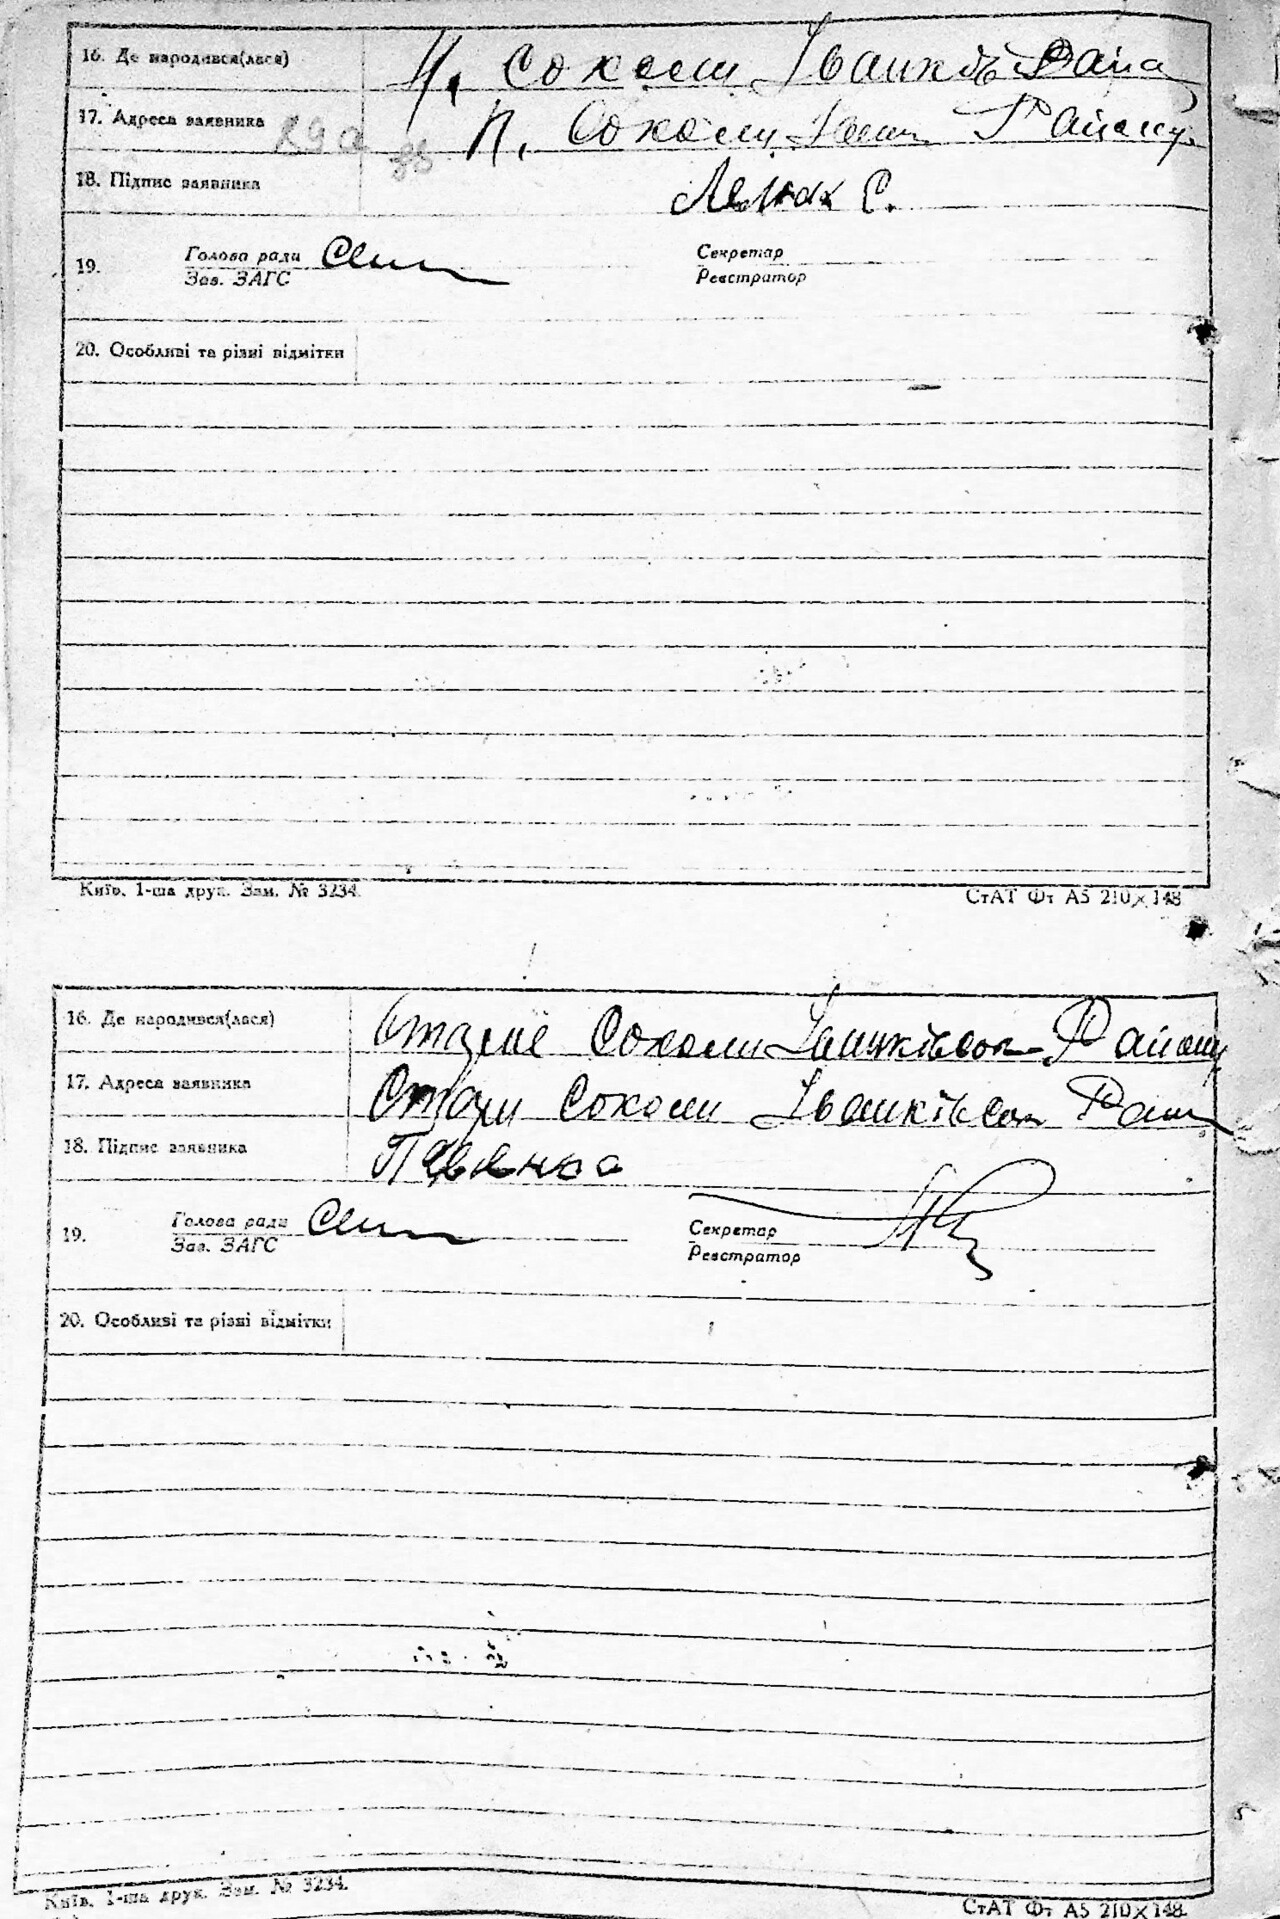 16. Де народився(лася) Н. Соколи Іванків Райо
17. Адреса заявника 89а 88 Н. Соколи Іван Району
18. Підпис заявника Лелюк С.
19. Голова ради Секретар
Зав. ЗАГС Реєстратор
20. Особливі та різні відмітки
Київ. 1-ша друк. Зам. № 3234. СтАТ Фт А5 210×148
16. Де народився(лася) Старі Соколи Іванківськ Району
17. Адреса заявника Стари Соколи Іванківськ Рай
18. Підпис заявника
19. Голова ради Секретар
Зав. ЗАГС Реєстратор
20. Особливі та різні відмітки
Київ. 1-ша друк. Зам. № 3234. СтАТ Фт А5 210×148